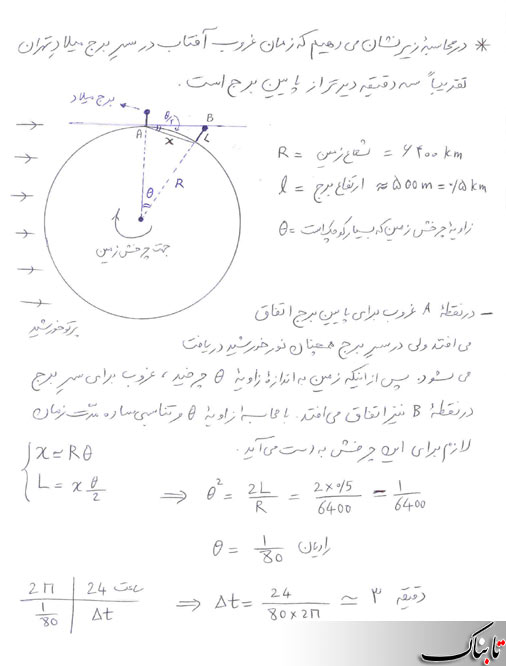 * در محاسبهٔ زیر نشان می دهیم که زمان غروب آفتاب در سرِ برج میلاد تهران
تقریباً سه دقیقه دیرتر از پایین برج است.
برج میلاد
θ/2
B
A
x
L
R = شعاع زمین = ۶۴۰۰ km
θ
R
l = ارتفاع برج ≈ ۵۰۰m = ۰/۵ km
جهت چرخش زمین
زاویهٔ چرخش زمین که بسیار کوچک است = θ
پرتو خورشید
- در نقطهٔ A غروب برای پایین برج اتفاق
می افتد ولی در سرِ برج همچنان نور خورشید دریافت
می شود. پس از اینکه زمین به اندازهٔ زاویهٔ θ چرخید، غروب برای سرِ برج
در نقطهٔ B نیز اتفاق می افتد. با محاسبهٔ زاویهٔ θ و تناسبی ساده مدّت زمان
لازم برای این چرخش به دست می آید.
x ≃ Rθ
L = x θ/2 ⇒ θ² = 2L/R = 2×0/5/6400 = 1/6400
θ = 1/80 رادیان
2π | 24 ساعت
1/80 | Δt ⇒ Δt = 24/80×2π ≃ ۳ دقیقه
تابناک